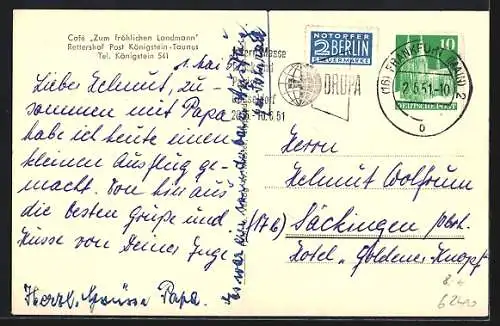 Café „Zum fröhlichen Landmann"
Rettershof Post Königstein-Taunus
Tel. Königstein 541
1. Mai
Lieber Helmut, zu-
sammen mit Papa
habe ich heute einen
kleinen Ausflug ge-
macht. Von hier aus
die besten Grüße und
Küsse von Deiner Inge
Herzl. Grüsse Papa.
Es war ein
NOTOPFER
2 BERLIN
STEUERMARKE
DRUPA
10.6.51
(16) FRANKFURT (MAIN) 2
2.5.51-10
b
10
DEUTSCHE POST
Herrn
Helmut Wolfrum
(17b) Säckingen
Hotel „Goldener Knopf